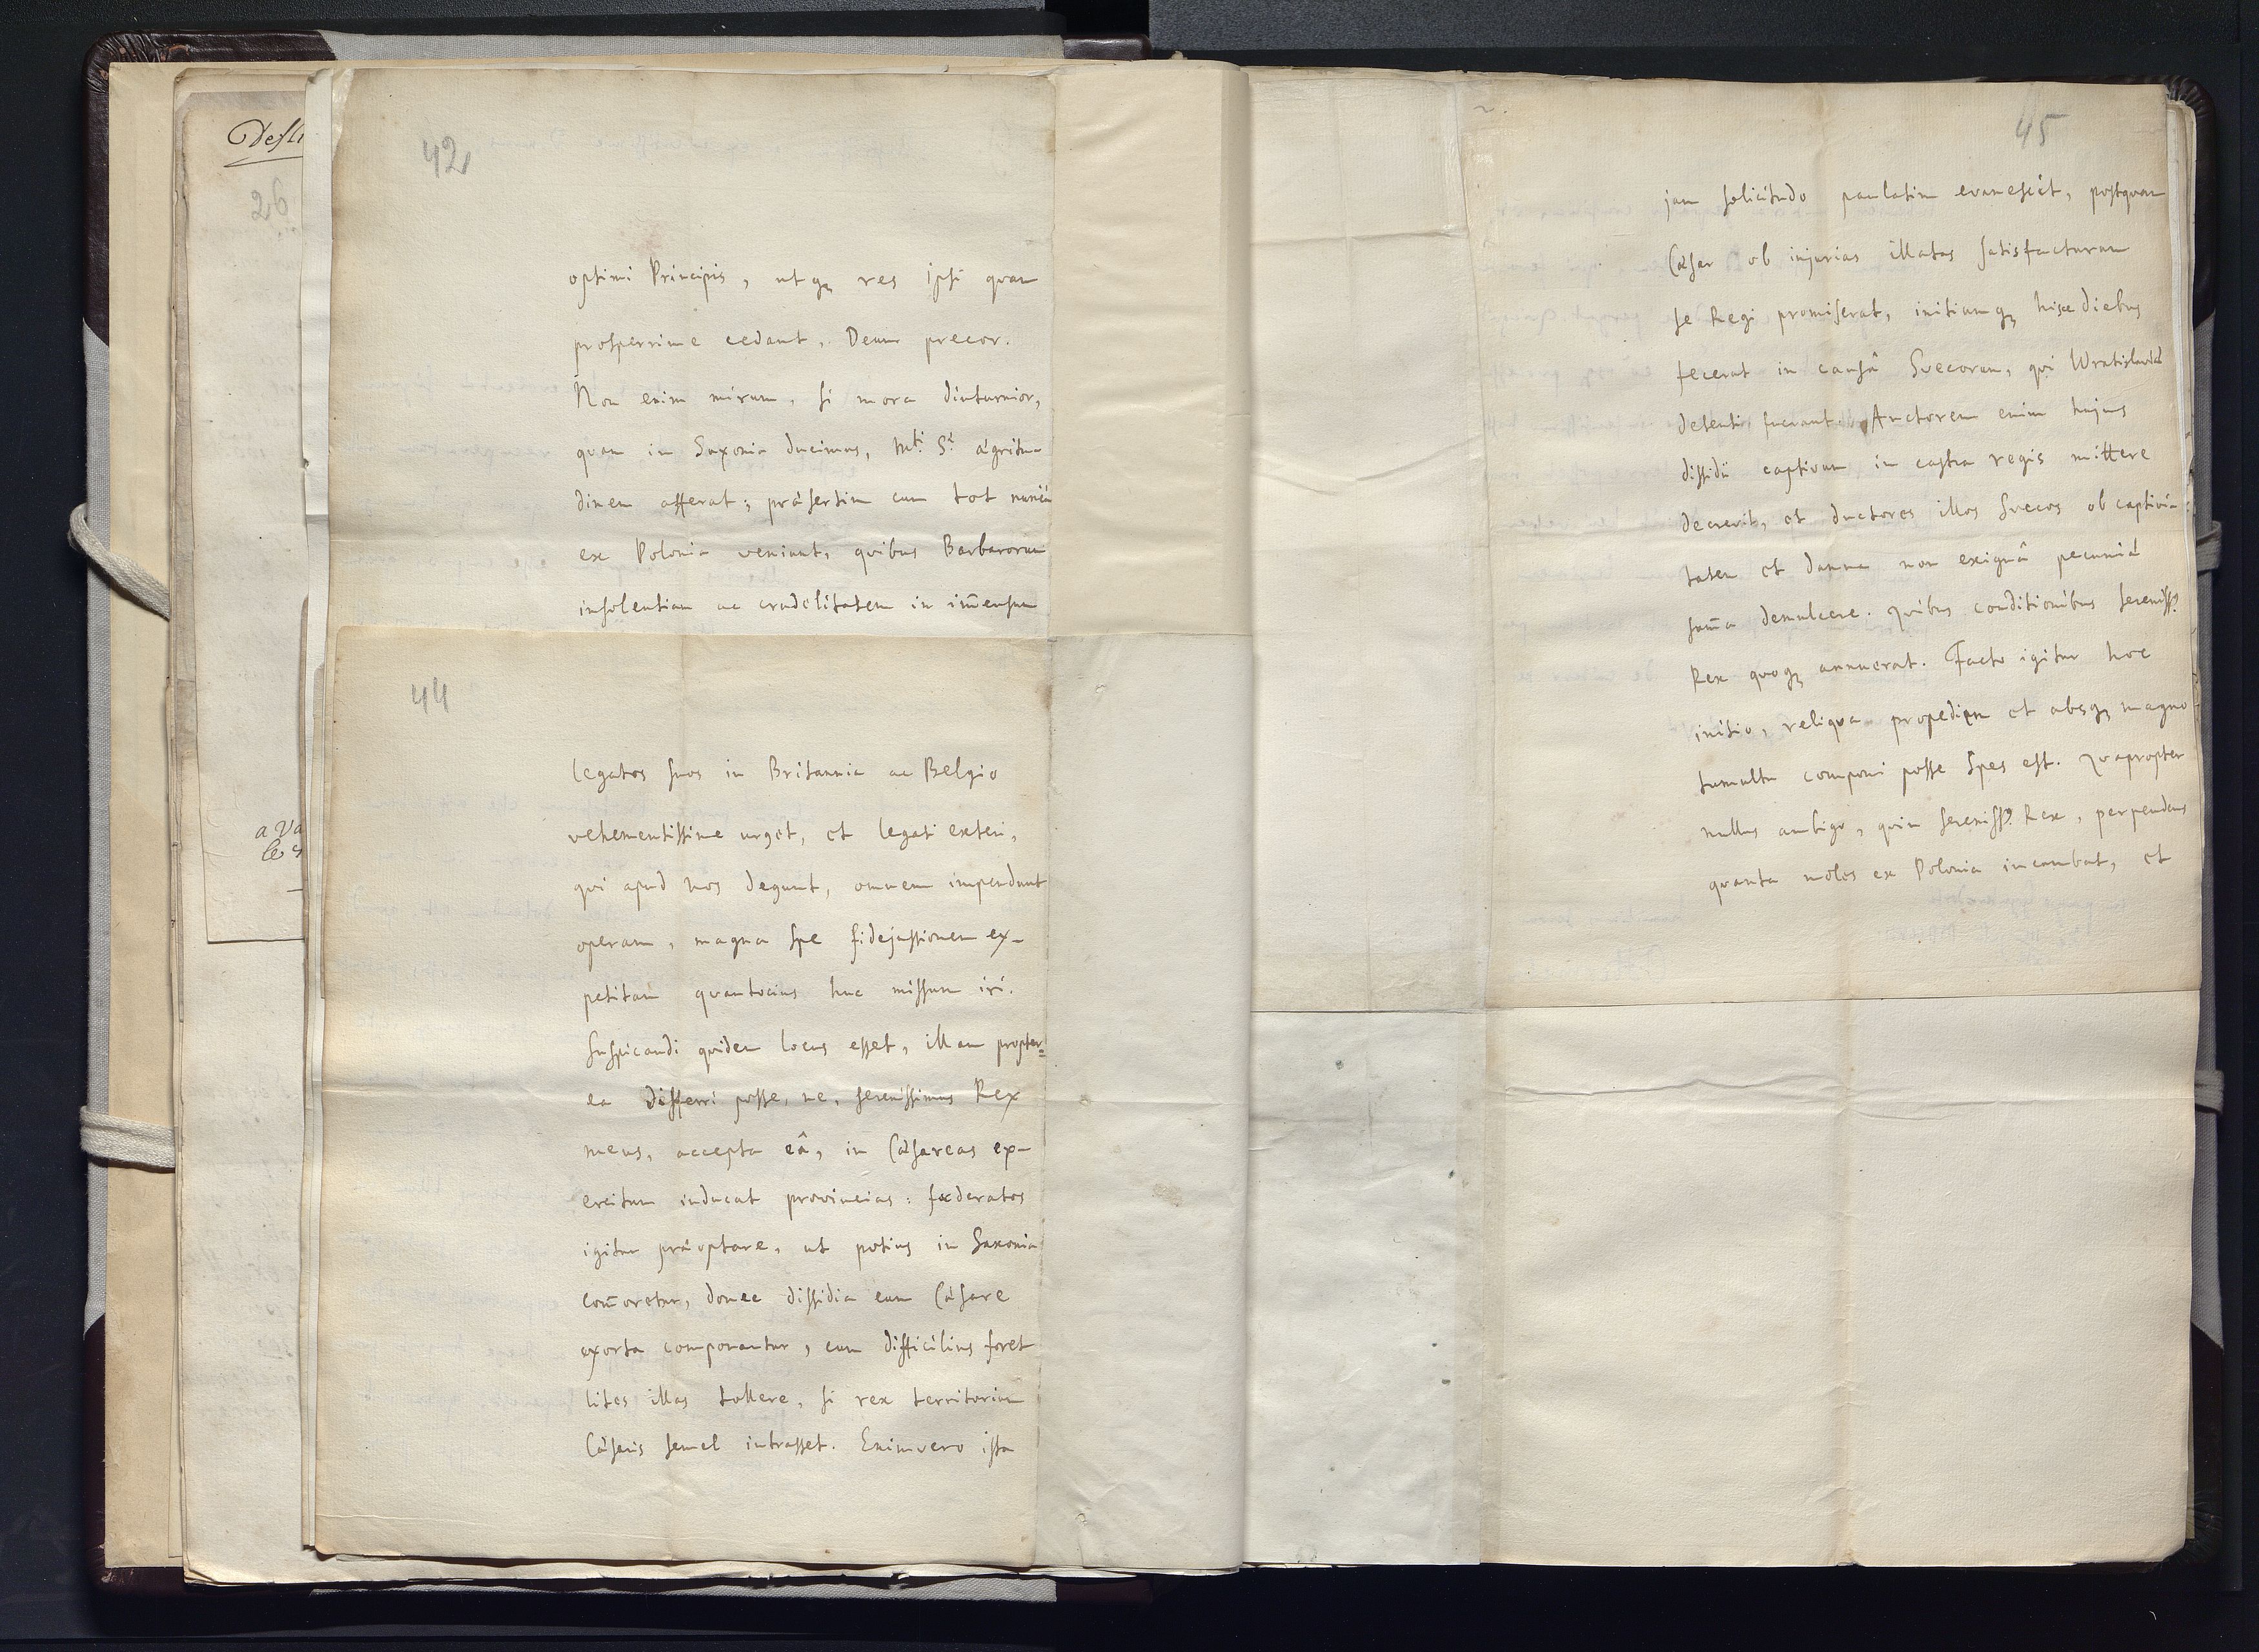 42
optimi Principis, utq₃ res ipsi quam
prosperrime cedant, Deum precor.
Non enim mirum, si mora diuturnior,
quam in Saxonia ducimus, Mti. Sæ ægritu-
dinem afferat; præsertim cum tot nuncii
ex Polonia veniant, quibus Barbarorum
insolentiam ac crudelitatem in im̄ensum
44
legatos suos in Britannia ac Belgio
vehementissime urget, et legati exteri,
qvi apud nos degunt, omnem impendunt
operam, magna spe fidejussionem ex-
petitam quantocius huc missum iri.
Suspicandi qvidem locus esset, illam propter-
ea differri posse, ne, serenissimus Rex
meus, accepta eâ, in Cæsareas ex-
ercitum inducat provincias: fœderatos
igitur præoptare, ut potius in Saxonia
com̄oretur, donec dissidia cum Cæsare
exorta componantur, cum difficilius foret
lites illas tollere, si rex territorium
Cæsaris semel intrasset. Enimvero ista
45
jam solicitudo paulatim evanescit, postquam
Cæsar ob injurias illatas satisfacturum
se Regi promiserat, initiumq₃ hisce diebus
fecerat in causâ Svecorum, qvi Wratislaviæ
detenti fuerant. Auctorem enim hujus
dissidii captivum in castra regis mittere
decrevit, et ductores illos Svecos ob captivi-
tatem et damna non exiguâ pecuniæ
sum̄a demulcere. Qvibus conditionibus sereniss.
Rex quoq₃ annuerat. Facto igitur hoc
initio, reliqva propediem et absq₃ magno
tumultu componi posse spes est. Qvapropter
nullus ambigo, quin sereniss. Rex, perpendens
quanta moles ex Polonia incumbat, et
26